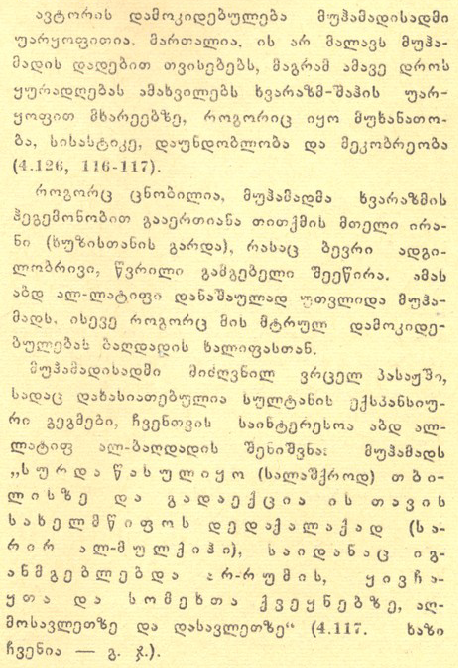 ავტორის დამოკიდებულება მუჰამადისადმი
უარყოფითია. მართალია, ის არ მალავს მუჰა-
მადის დადებით თვისებებს, მაგრამ ამავე დროს
ყურადღებას ამახვილებს ხვარაზმ-შაჰის უარ-
ყოფით მხარეებზე, როგორიც იყო მუხანათო-
ბა, სისასტიკე, დაუნდობლობა და მეკობრეობა
(4.126, 116-117).
როგორც ცნობილია, მუჰამადმა ხვარაზმის
ჰეგემონობით გააერთიანა თითქმის მთელი ირა-
ნი (ხუზისთანის გარდა), რასაც ბევრი ადგი-
ლობრივი, წვრილი გამგებელი შეეწირა. ამას
აბდ ალ-ლატიფი დანაშაულად უთვლიდა მუჰა-
მადს, ისევე როგორც მის მტრულ დამოკიდე-
ბულებას ბაღდადის ხალიფასთან.
მუჰამადისადმი მიძღვნილ ვრცელ პასაჟში,
სადაც დახასიათებულია სულტანის ექსპანსიუ-
რი გეგმები, ჩვენთვის საინტერესოა აბდ ალ-
ლატიფ ალ-ბაღდადის შენიშვნა: მუჰამადს
„სურდა წასულიყო (სალაშქროდ) თბი-
ლისზე და გადაექცია ის თავის
სახელმწიფოს დედაქალაქად (სა-
რირ ალ-მულქიჰი), საიდანაც იგ-
ანმგებლებდა არ-რუმის, ყივჩა-
ყთა და სომეხთა ქვეყნებზე, აღ-
მოსავლეთზე და დასავლეთზე“ (4.117. ხაზი
ჩვენია — გ. ჯ.).